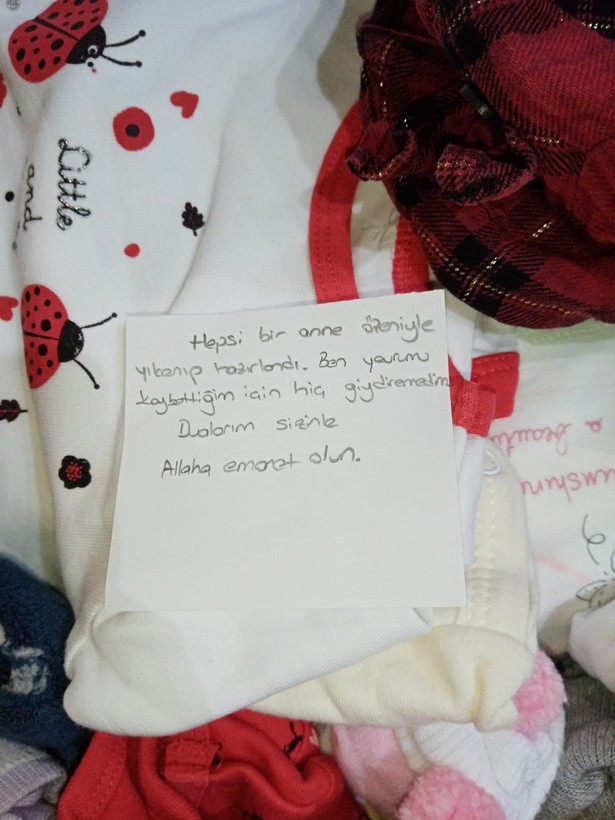 Little
and
Hepsi bir anne özeniyle
yıkanıp hazırlandı. Ben yavrumu
kaybettiğim için hiç giydiremedim
Dualarım sizinle
Allaha emanet olun.
a beauti
unshine